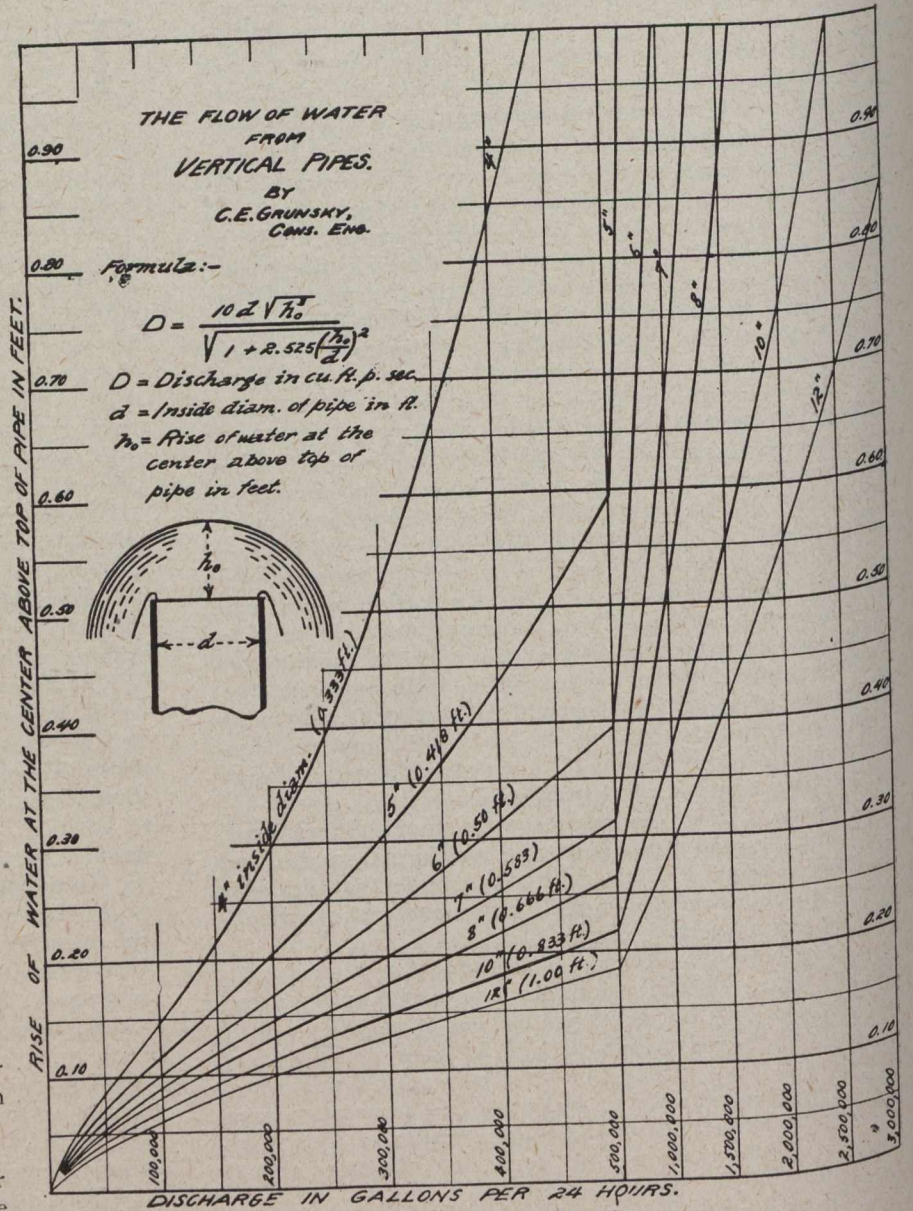 THE FLOW OF WATER
FROM
VERTICAL PIPES.
BY
C.E. GRUNSKY,
CONS. ENG.
Formula:-
D = 10 d √h₀³ / √1 + 2.525(h₀/d)²
D = Discharge in cu. ft. p. sec.
d = Inside diam. of pipe in ft.
h₀ = Rise of water at the
center above top of
pipe in feet.
h₀
d
RISE OF WATER AT THE CENTER ABOVE TOP OF PIPE IN FEET.
0.90
0.80
0.70
0.60
0.50
0.40
0.30
0.20
0.10
4"
5"
6"
7"
8"
10"
12"
4" inside diam. (0.333 ft.)
5" (0.418 ft.)
6" (0.50 ft.)
7" (0.583)
8" (0.666 ft.)
10" (0.833 ft.)
12" (1.00 ft.)
0.90
0.80
0.70
0.60
0.50
0.40
0.30
0.20
0.10
100,000
200,000
300,000
400,000
500,000
1,000,000
1,500,000
2,000,000
2,500,000
3,000,000
DISCHARGE IN GALLONS PER 24 HOURS.